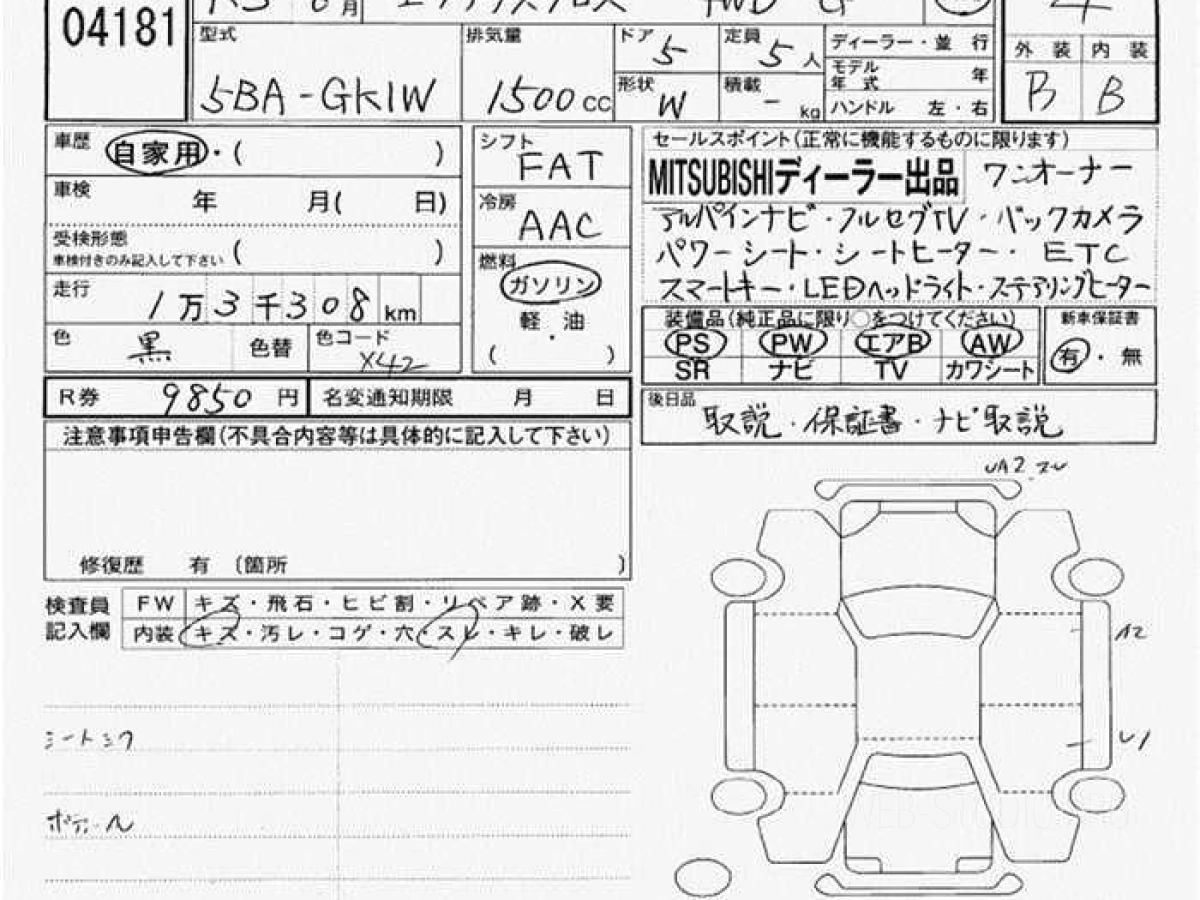 04181
R3 6月 エクリプスクロス 4WD G 4
型式 排気量 ドア 5 定員 5人 ディーラー・並行 外装 内装
5BA-GK1W 1500cc 形状 W 積載 - kg モデル年式 年 B B
ハンドル 左・右
車歴 自家用・( )
シフト FAT
セールスポイント(正常に機能するものに限ります)
MITSUBISHIディーラー出品 ワンオーナー
車検 年 月( 日)
冷房 AAC
アルパインナビ・フルセグTV・バックカメラ
受検形態 ( )
車検付きのみ記入して下さい
パワーシート・シートヒーター・ETC
燃料 ガソリン
スマートキー・LEDヘッドライト・ステアリングヒーター
走行 1万3千308km
軽油
( )
装備品(純正品に限り○をつけてください) 新車保証書
色 黒 色替 色コード X42
PS PW エアB AW 有・無
SR ナビ TV カワシート
R券 9850円 名変通知期限 月 日
後日品 取説・保証書・ナビ取説
注意事項申告欄(不具合内容等は具体的に記入して下さい)
UA2
修復歴 有 〔箇所 〕
検査員 FW キズ・飛石・ヒビ割・リペア跡・X要
記入欄 内装 キズ・汚レ・コゲ・穴・スレ・キレ・破レ
A2
シートシワ
U1